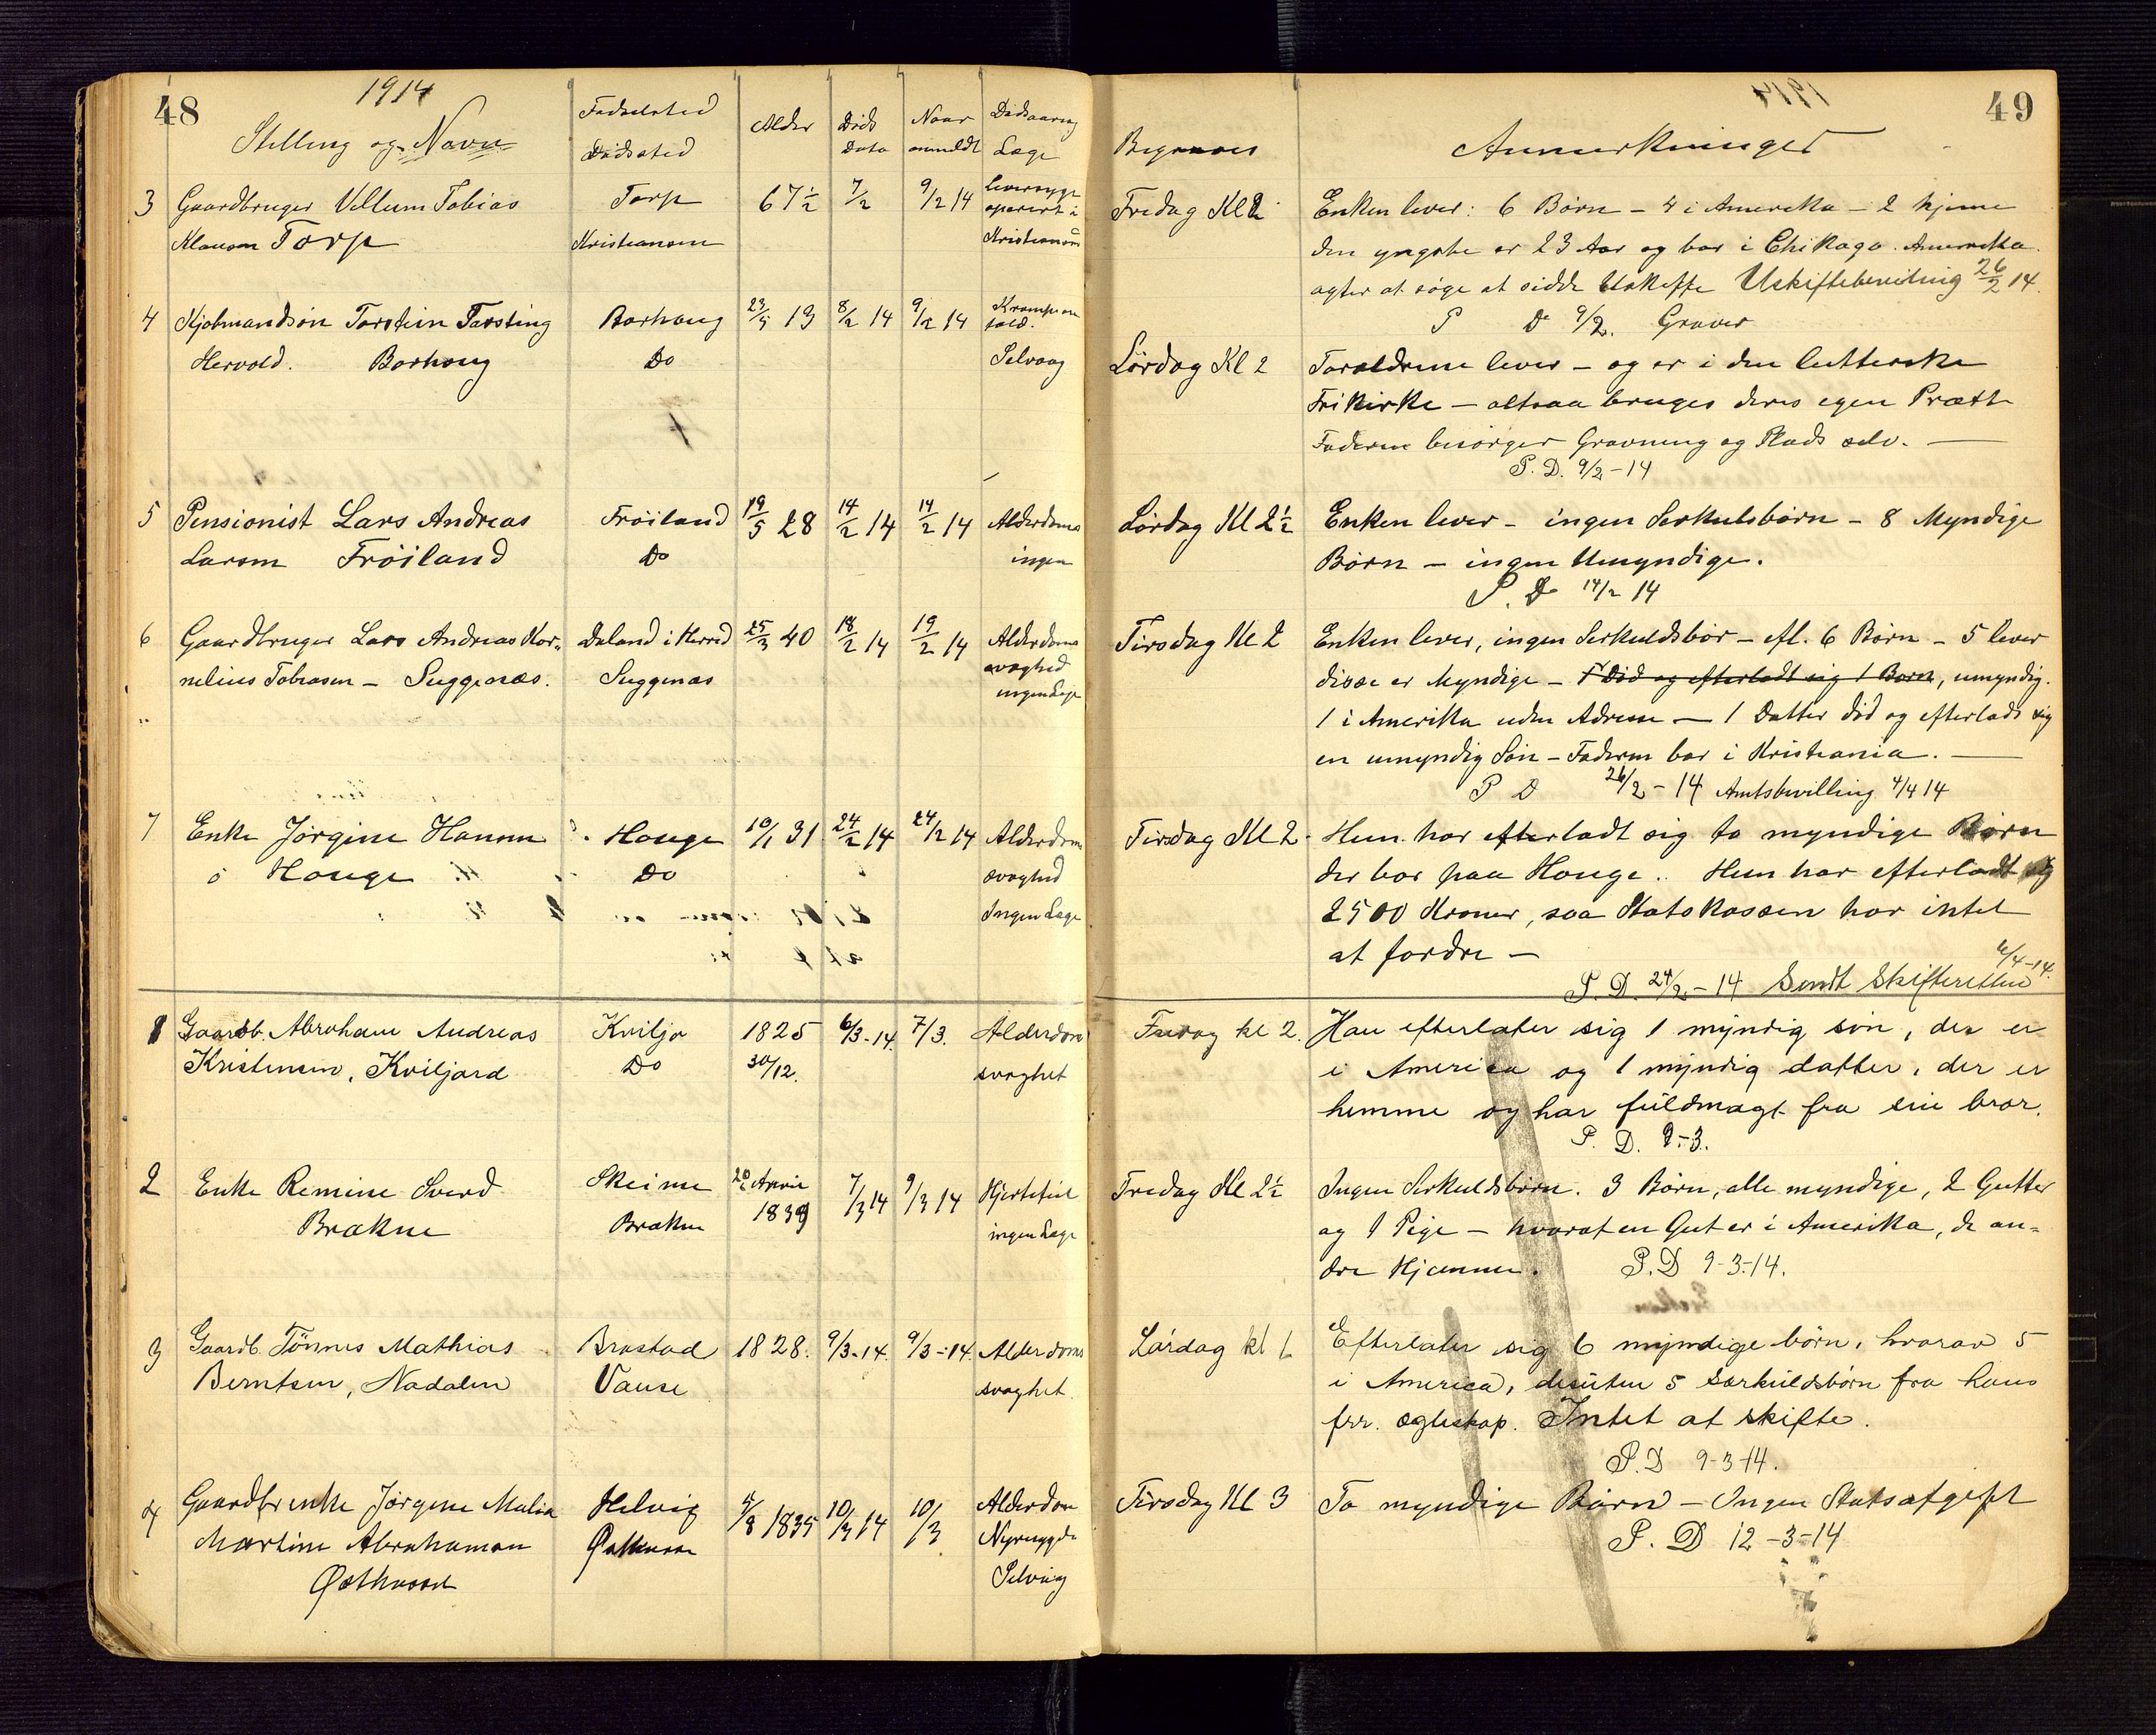 48
1914
Stilling og Navn
Fødselsted
Dødsted
Alder
Døds
Dato
Naar
anmeldt
Dødsaarsag
Læge
3 Gaardbruger Vellum Tobias
Klausen Torp
Torp
Kristiansen
67 1/2
7/2
9/2 14
leversyge
operert i
4 Kjøbmandsøn Torstein Torsting
Hervold. Borhoug
Borhaug
Do
8/2 14
9/2 14
Selvaag
5 Pensionist Lars Andreas
Larsen Frøiland
Frøiland
Do
19/5 28
14/2 14
14/2 14
Alderdoms
ingen
6 Gaardbruger Lars Andreas Kor„
nelius Tobiasen – Suggenæs.
Daland i Herred
Suggenæs
25/3 40
18/2 14
19/2 14
Alderdoms
svaghed
7 Enke Jørgine Hansen
Houge
Houge
Do
10/1 31
24/2 14
24/2 14
Alderdom
svaghed
Ingen Læge
1 Gaardb. Abraham Andreas
Kristensen, Kviljord
Kviljo
Do
1825
30/12.
6/3-14.
7/3.
Alderdoms
svaghet
2 Enke Remine Sverd
Brækne
Skeime
Brækne
20 April
1839
7/3 14
9/3 14
Hjertefeil
ingen Læge
3 Gaardb. Tønnes Mathias
Berntsen, Nadalen
Brastad
Vanse
1828.
9/3-14.
9/3-14.
Alderdoms
svaghet.
4 Gaardbrenke Jørgine Malia
Martine Abrahamsen
Østhassel
Helvig
Østhassel
1835
10/3 14
10/3
Alderdom
Nyresygdom
Selvaag
49
Begraves
Anmerkninger
Fredag Kl 2
Enken lever: 6 Børn – 4 i Amerika – 2 hjeme
den yngste er 23 Aar og bor i Chikago. Amerika.
agter at søge at sidde Uskifte Uskiftebevilling 26/2 14.
P D 9/2. Graver
Lørdag Kl 2
Foreldrene lever – og er i den lutterske
Frikirke – altsaa bruges deres egen Præst
Faderen besørger Gravning og Plads selv. –
P. D. 9/2-14
Lørdag Kl 2 1/2
Enken lever – ingen Serkulsbørn – 8 Myndige
Børn – ingen Umyndige.
P. D 14/2 14
Tirsdag Kl 2
Enken lever, ingen Serkuldsbør – efl. 6 Børn – 5 lever
disse er Myndige – 1 død og efterladt sig 1 Barn, umyndig.
1 i Amerika uden Adresse – 1 Datter død og efterlads sig
en umyndig Søn – Faderen bor i Kristiania. –
P D 26/2-14 Amtsbevilling 4/4 14
Tirsdag Kl 2
Hun har efterladt sig to myndige Børn
der bor paa Houge. Hun har efterladt sig
2500 Kroner, saa Statskassen har intet
at fordre –
P. D. 24/2-14 Sendt Skifteretten 6/4-14.
Fredag kl 2.
Han efterlater sig 1 myndig søn, der er
i America og 1 myndig datter, der er
hemme og har fuldmagt fra sin bror.
P. D. 9-3.
Fredag Kl 2 1/2
Ingen Serkuldsbørn. 3 Børn, alle myndige, 2 Gutter
og 1 Pige – hvoraf en Gut er i Amerika, de an=
dre Hjemme. P. D 9-3-14.
Lørdag kl 1
Efterlater sig 6 myndige børn, hvorav 5
i America, desuten 5 særkuldsbørn fra hans
frr. ægteskap. Intet at skifte.
P. D 9-3-14.
Tirsdag Kl 3
To myndige Børn – Ingen Statsafgift
P. D 12-3-14